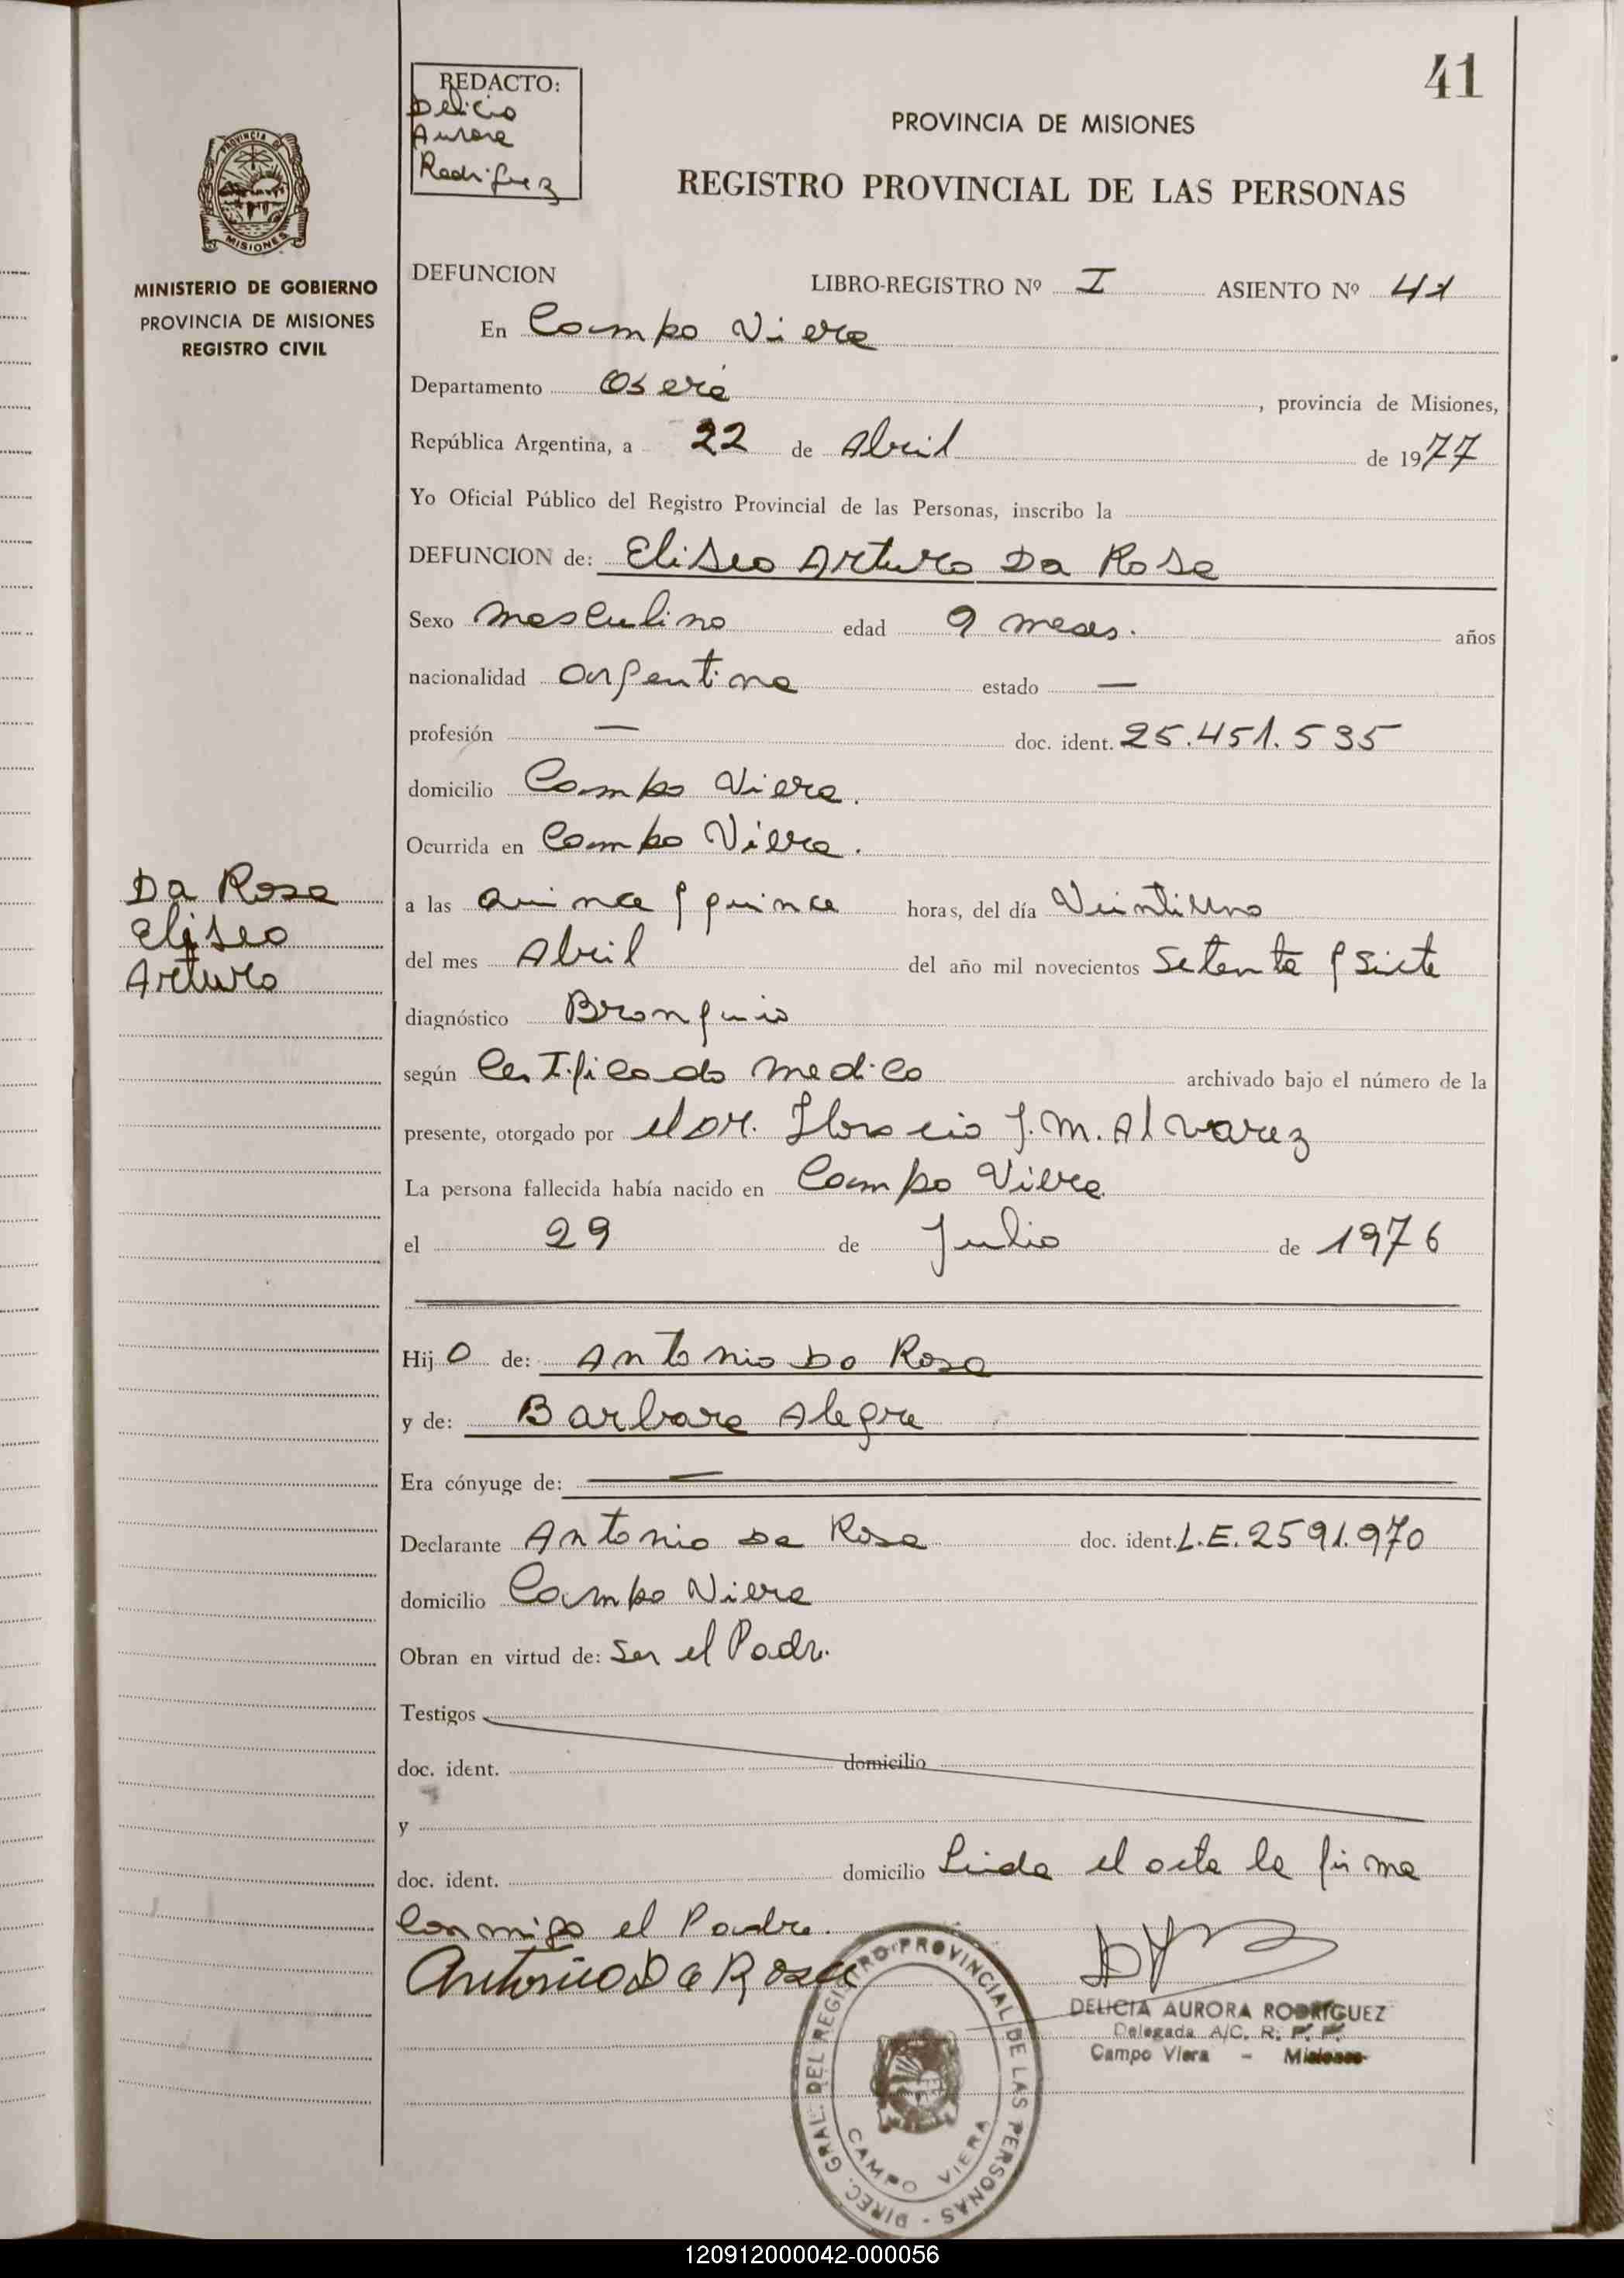 41
REDACTO:
Delicia
Aurora
Rodriguez
PROVINCIA DE MISIONES
REGISTRO PROVINCIAL DE LAS PERSONAS
PROVINCIA DE
MISIONES
MINISTERIO DE GOBIERNO
PROVINCIA DE MISIONES
REGISTRO CIVIL
DEFUNCION LIBRO-REGISTRO Nº I ASIENTO Nº 41
En Campo Viera
Departamento Oberá, provincia de Misiones,
República Argentina, a 22 de Abril de 1977
Yo Oficial Público del Registro Provincial de las Personas, inscribo la
DEFUNCION de: Eliseo Arturo Da Rosa
Sexo masculino edad 9 meses. años
nacionalidad argentina estado —
profesión — doc. ident. 25.451.535
domicilio Campo Viera.
Ocurrida en Campo Viera.
Da Rosa
Eliseo
Arturo
a las quince y quince horas, del día Veintiuno
del mes Abril del año mil novecientos setenta y siete
diagnóstico
según Certificado medico archivado bajo el número de la
presente, otorgado por el Dr. Horacio J. M. Alvarez
La persona fallecida había nacido en Campo Viera
el 29 de Julio de 1976
Hijo de: Antonio Da Rosa
y de: Barbara Alegre
Era cónyuge de: —
Declarante Antonio Da Rosa doc. ident. L.E. 2591.970
domicilio Campo Viera
Obran en virtud de: Ser el Padre.
Testigos
doc. ident. domicilio
y
doc. ident. domicilio Leida el acta la firma
conmigo el Padre.
Antonio Da Rosa
DIREC. GRAL. DEL REGISTRO PROVINCIAL DE LAS PERSONAS -
CAMPO VIERA
DELICIA AURORA RODRIGUEZ
Delegada A/C. R. P. P.
Campo Viera - Misiones
120912000042-000056